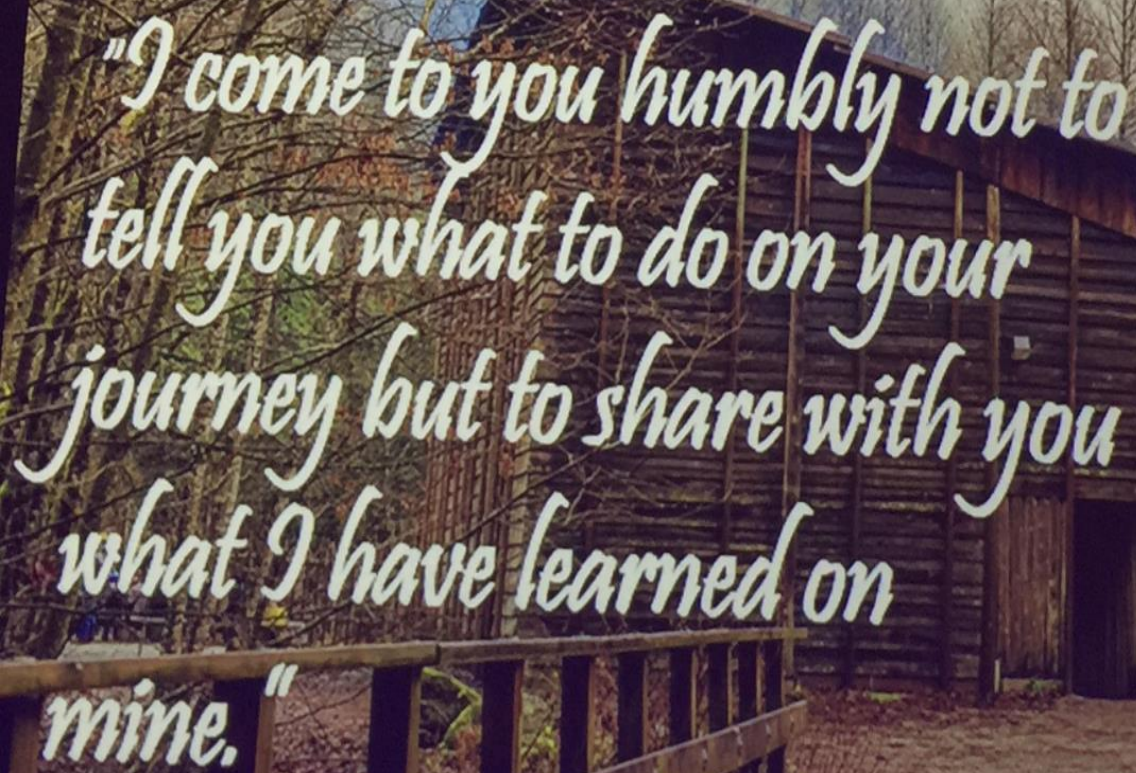 "I come to you humbly not to
tell you what to do on your
journey but to share with you
what I have learned on
mine."